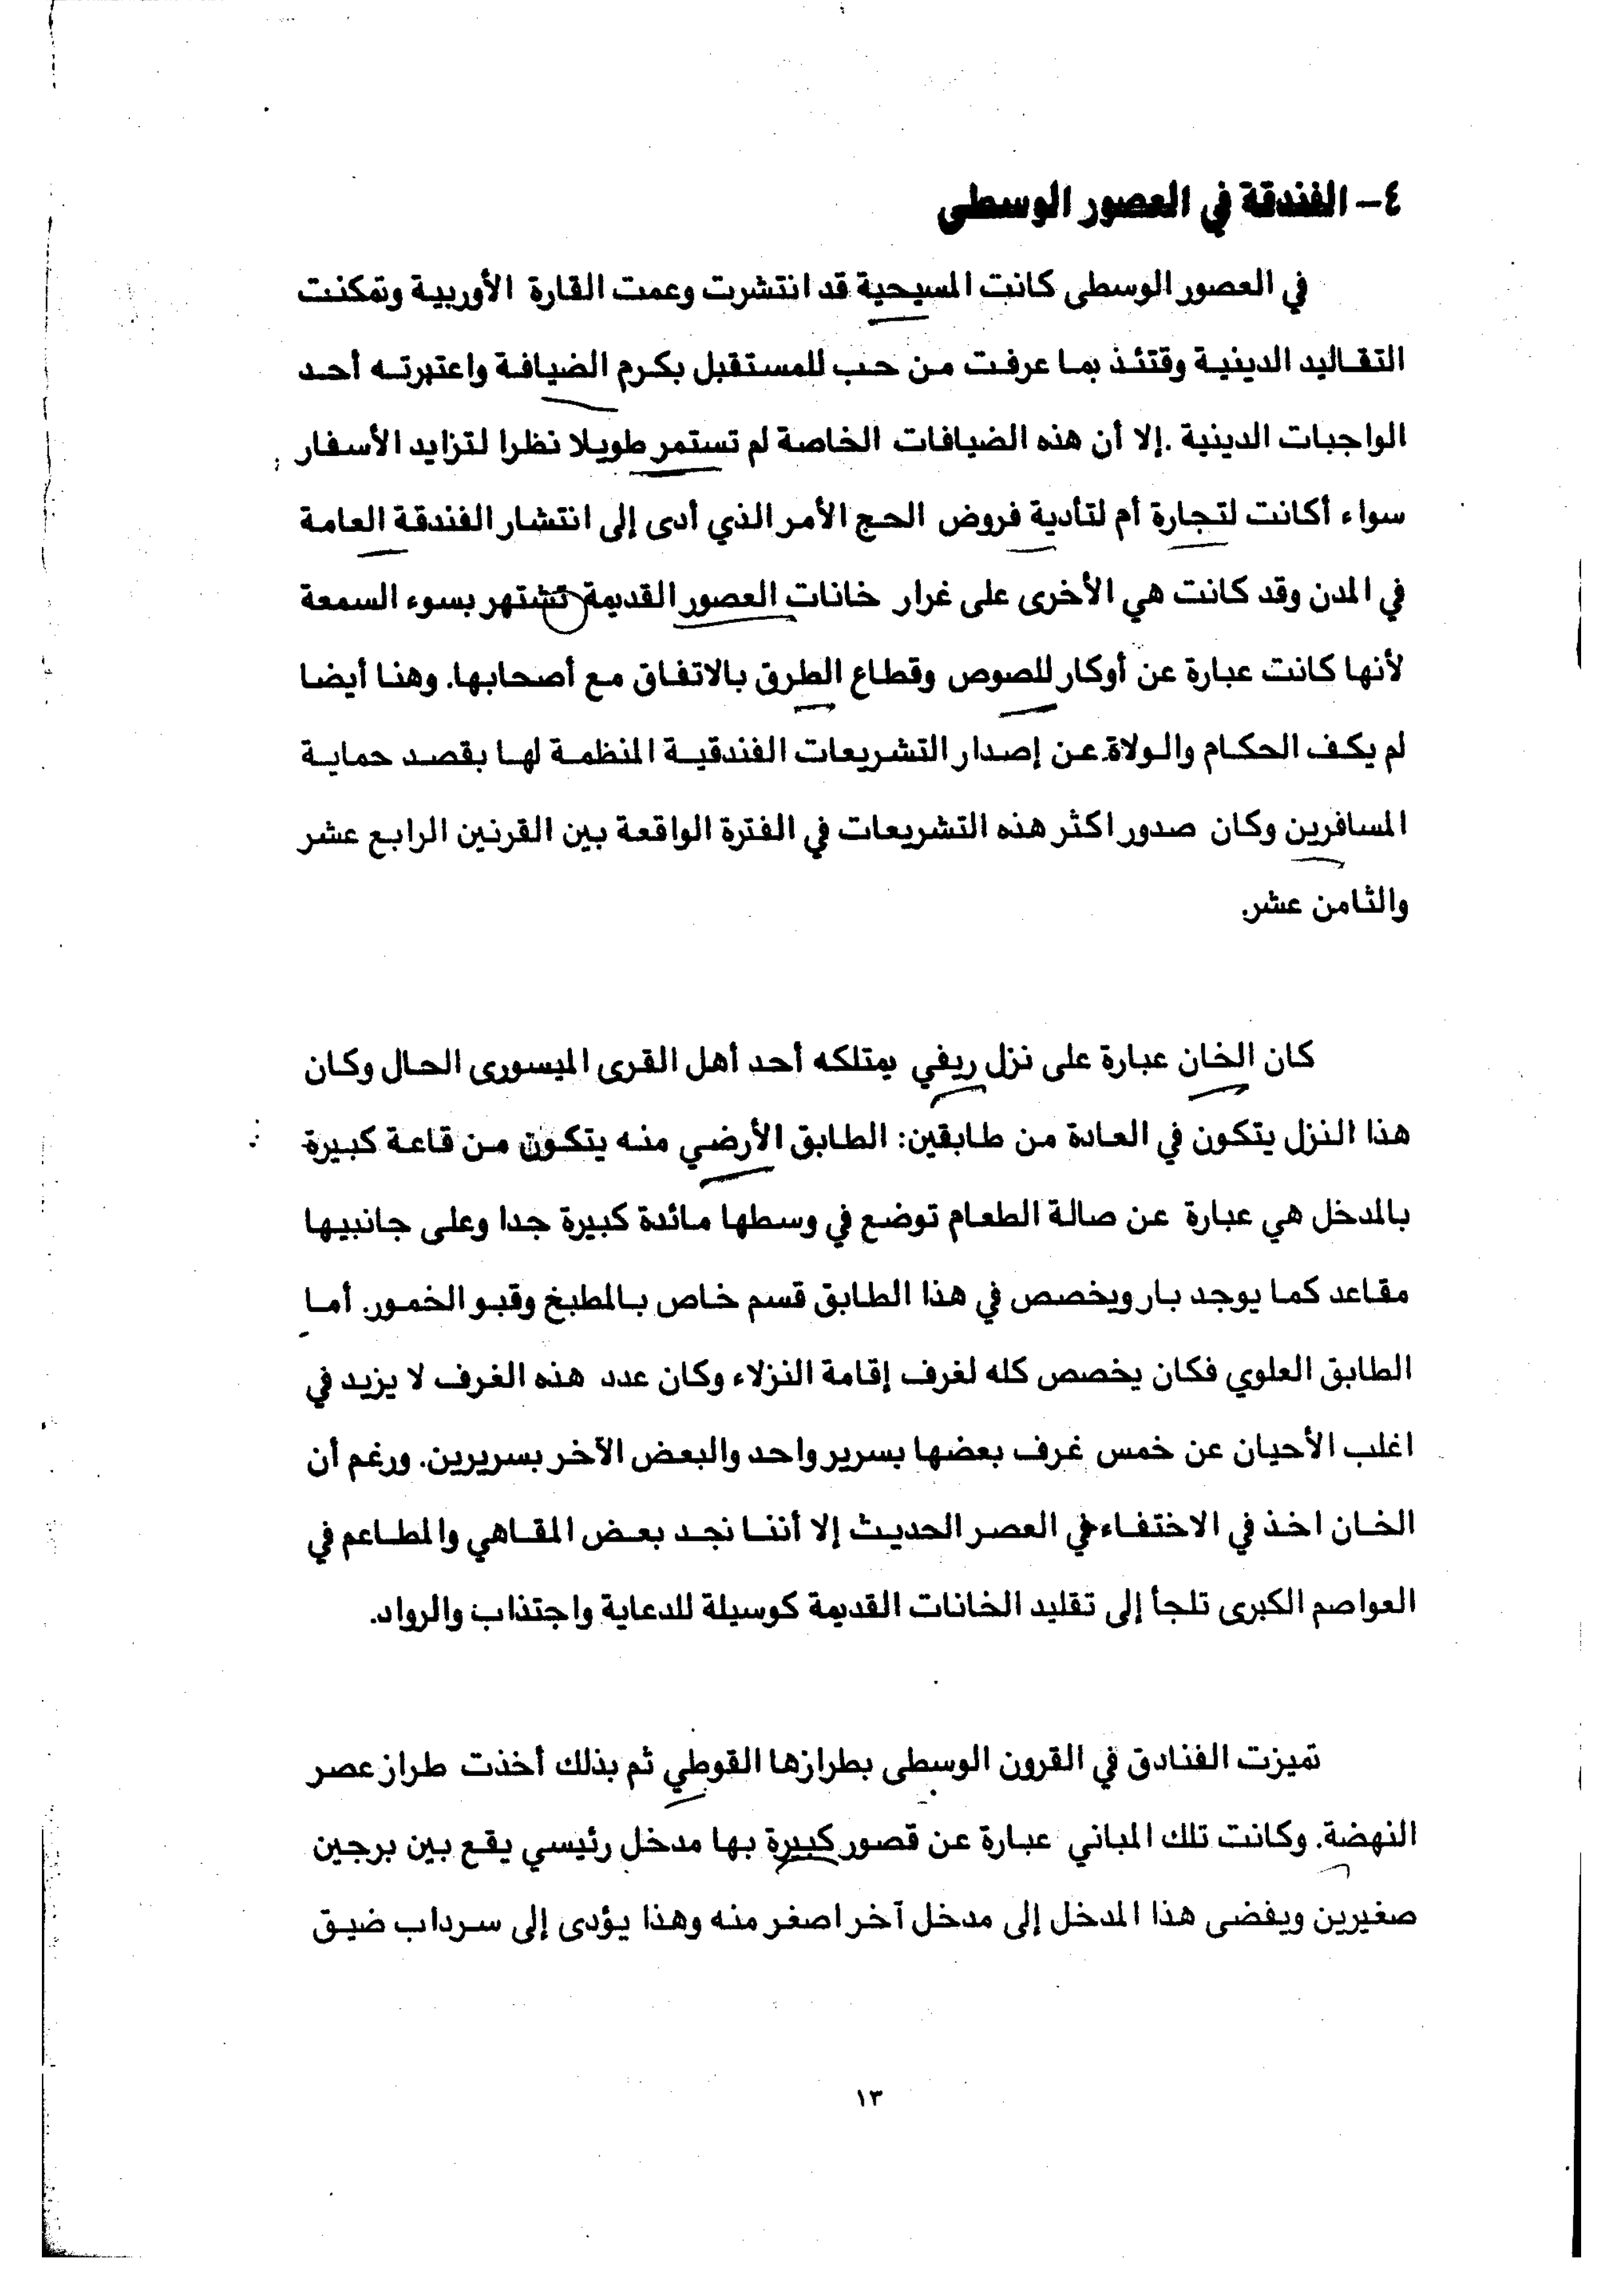 ٤- الفندقة في العصور الوسطى
في العصور الوسطى كانت المسيحية قد انتشرت وعمت القارة الأوربية وتمكنت
التقاليد الدينية وقتئذ بما عرفت من حب للمستقبل بكرم الضيافة واعتبرته أحد
الواجبات الدينية .إلا أن هذه الضيافات الخاصة لم تستمر طويلا نظرا لتزايد الأسفار
سواء أكانت لتجارة أم لتأدية فروض الحج الأمر الذي أدى إلى انتشار الفندقة العامة
في المدن وقد كانت هي الأخرى على غرار خانات العصور القديمة تشتهر بسوء السمعة
لأنها كانت عبارة عن أوكار للصوص وقطاع الطرق بالاتفاق مع أصحابها. وهنا أيضا
لم يكف الحكام والولاة عن إصدار التشريعات الفندقية المنظمة لها بقصد حماية
المسافرين وكان صدور اكثر هذه التشريعات في الفترة الواقعة بين القرنين الرابع عشر
والثامن عشر.
كان الخان عبارة على نزل ريفي يمتلكه أحد أهل القرى الميسورى الحال وكان
هذا النزل يتكون في العادة من طابقين: الطابق الأرضي منه يتكون من قاعة كبيرة
بالمدخل هي عبارة عن صالة الطعام توضع في وسطها مائدة كبيرة جدا وعلى جانبيها
مقاعد كما يوجد بار ويخصص في هذا الطابق قسم خاص بالمطبخ وقبو الخمور. أما
الطابق العلوي فكان يخصص كله لغرف إقامة النزلاء وكان عدد هذه الغرف لا يزيد في
اغلب الأحيان عن خمس غرف بعضها بسرير واحد والبعض الآخر بسريرين. ورغم أن
الخان اخذ في الاختفاء في العصر الحديث إلا أننا نجد بعض المقاهي والمطاعم في
العواصم الكبرى تلجأ إلى تقليد الخانات القديمة كوسيلة للدعاية واجتذاب والرواد.
تميزت الفنادق في القرون الوسطى بطرازها القوطي ثم بذلك أخذت طراز عصر
النهضة. وكانت تلك المباني عبارة عن قصور كبيرة بها مدخل رئيسي يقع بين برجين
صغيرين ويفضى هذا المدخل إلى مدخل آخر اصغر منه وهذا يؤدى إلى سرداب ضيق
١٣